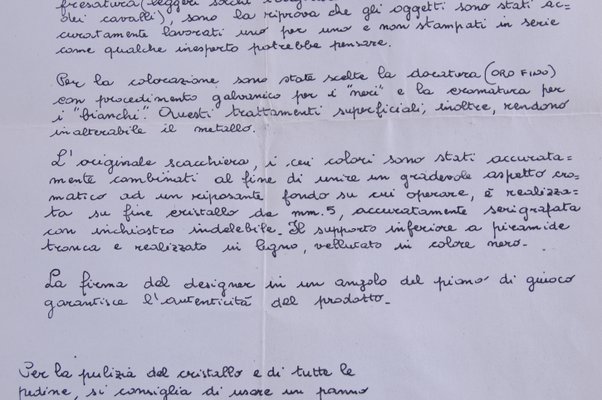 fresatura (leggeri solchi
dei cavalli), sono la riprova che gli oggetti sono stati ac=
curatamente lavorati uno per uno e non stampati in serie
come qualche inesperto potrebbe pensare.
Per la colorazione sono state scelte la doratura (ORO FINO)
con procedimento galvanico per i "neri" e la cromatura per
i "bianchi". Questi trattamenti superficiali, inoltre, rendono
inalterabile il metallo.
L'originale scacchiera, i cui colori sono stati accurata=
mente combinati al fine di unire un gradevole aspetto cro=
matico ad un riposante fondo su cui operare, è realizza=
ta su fine cristallo da mm. 5, accuratamente serigrafata
con inchiostro indelebile. Il supporto inferiore a piramide
tronca è realizzato in legno, vellutato in colore nero.
La firma del designer in un angolo del piano di giuoco
garantisce l'autenticità del prodotto.
Per la pulizia del cristallo e di tutte le
pedine, si consiglia di usare un panno